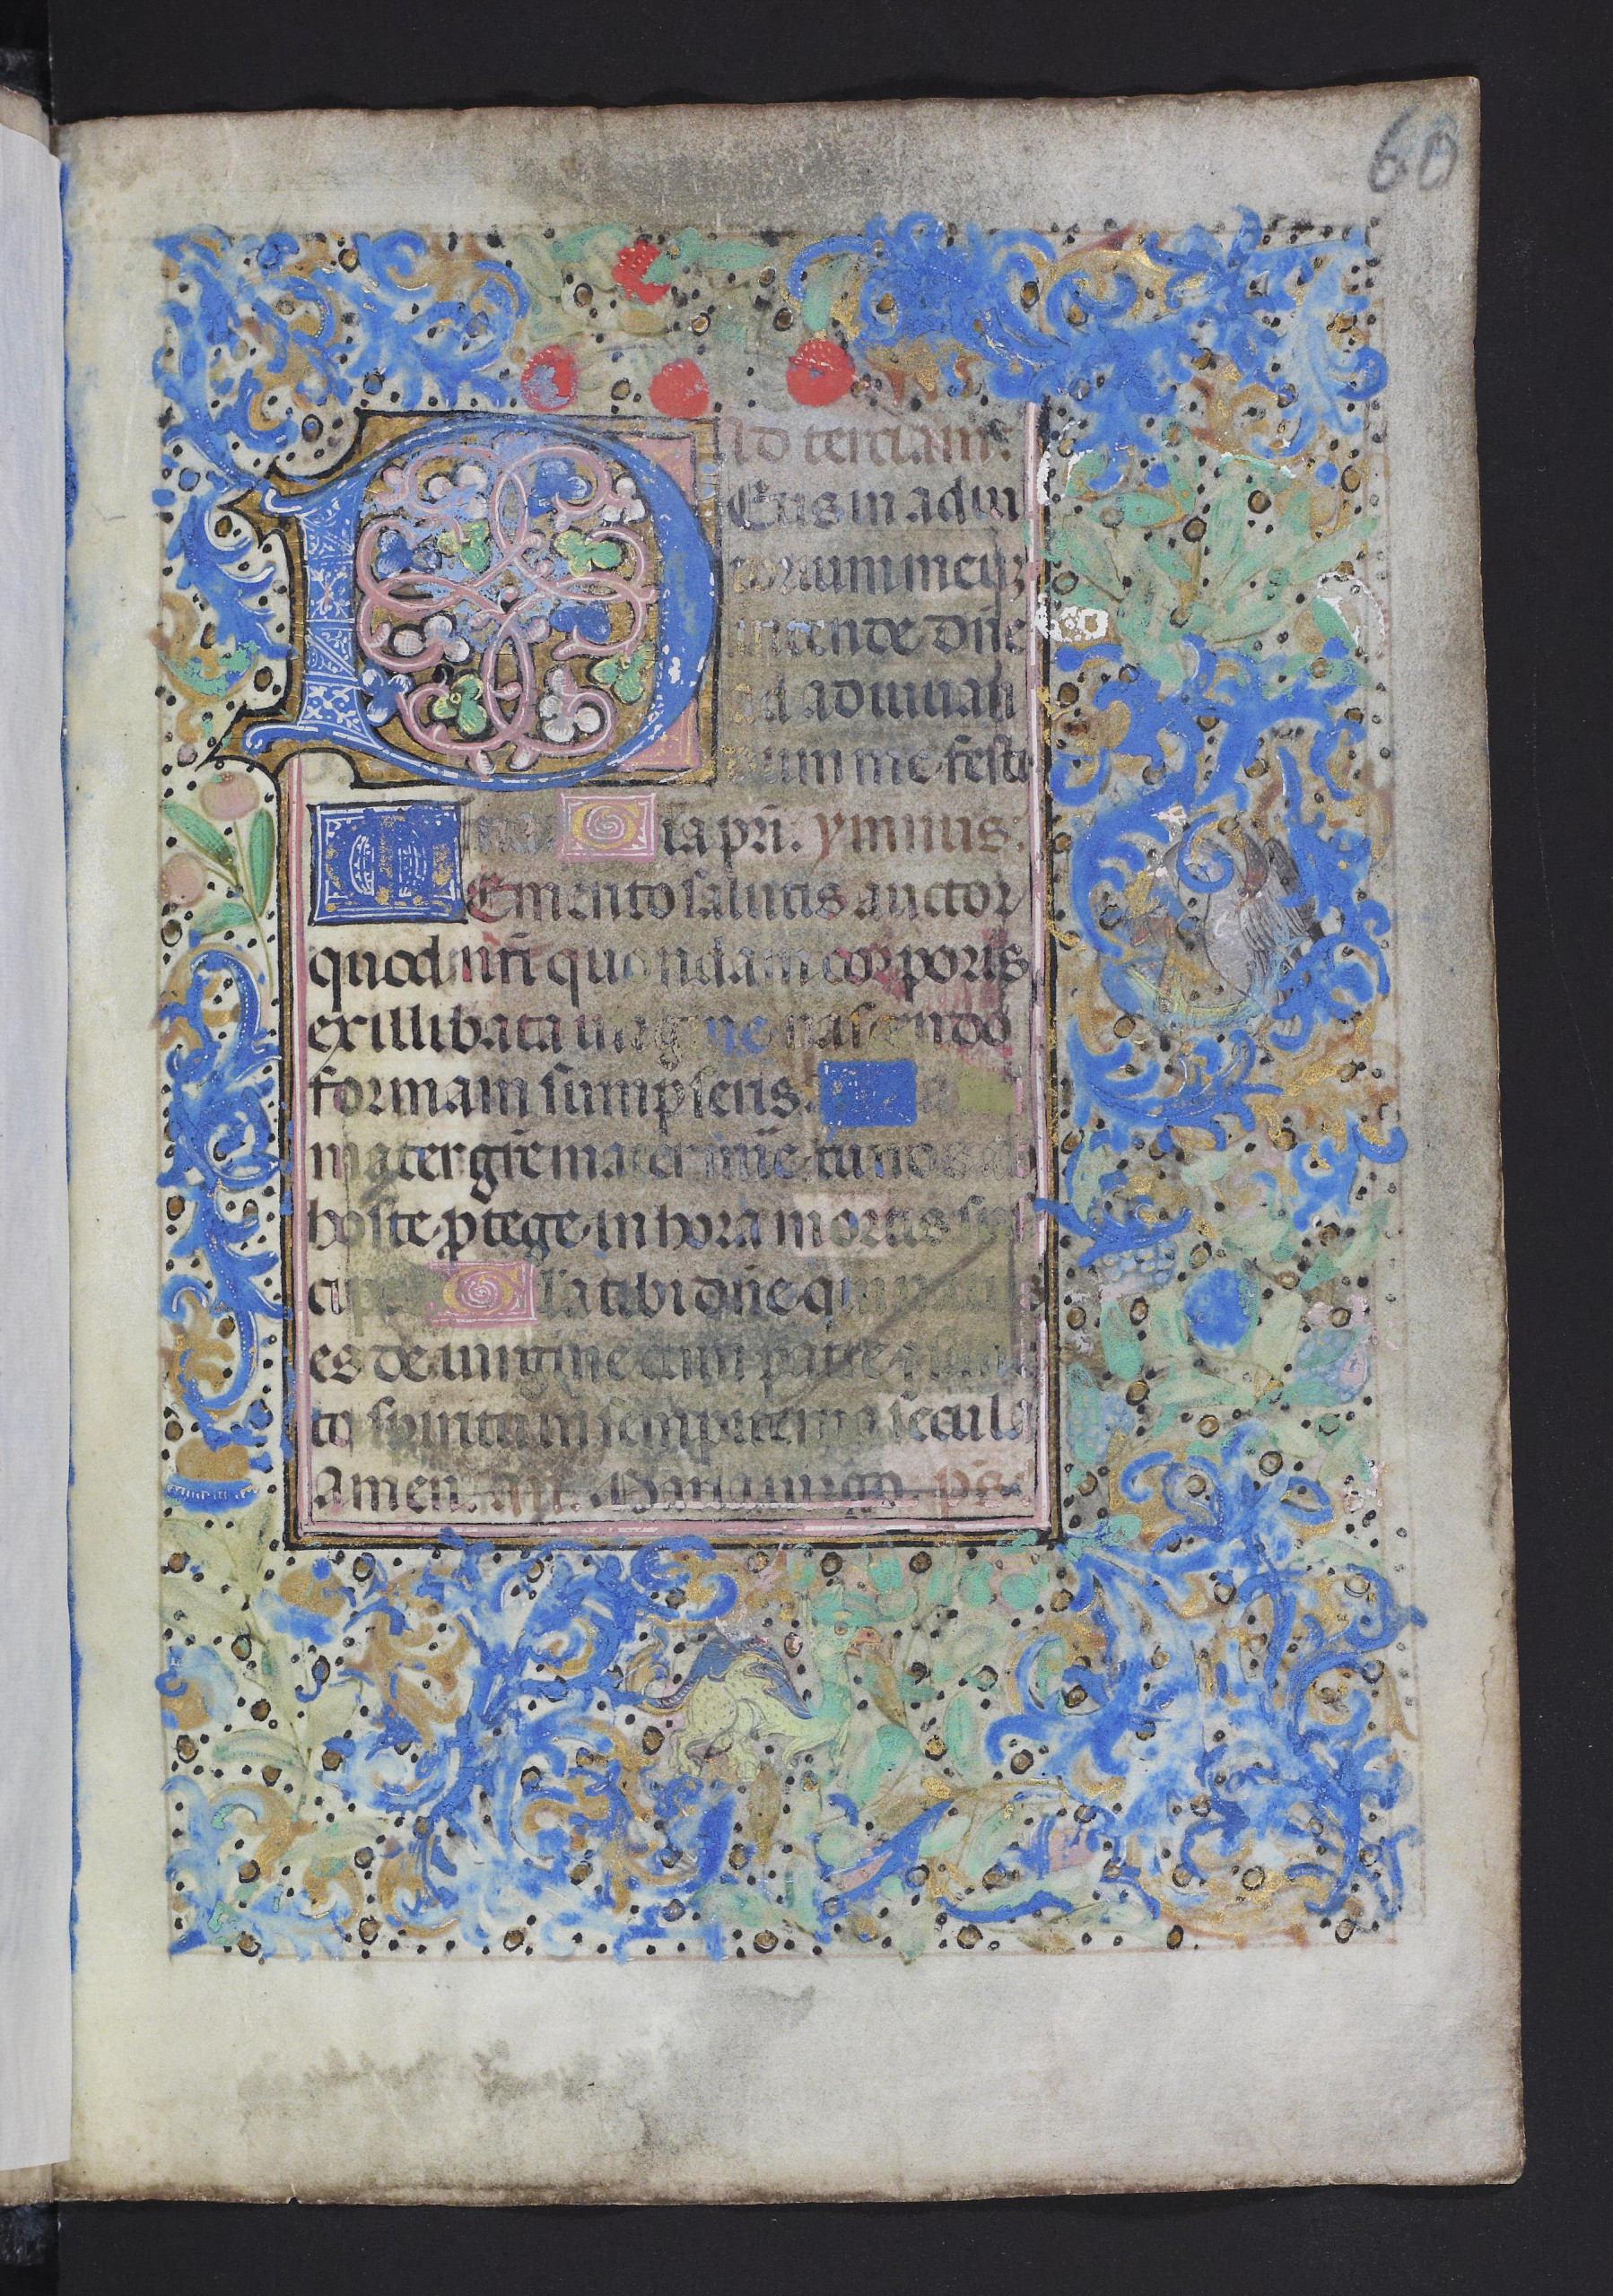 60
Ad terciam.
DEus in adiu
torium meum
intende dñe
ad adiuuan
dum me festi
na. Gl'ia pr̃i. ymnus:
MEmento salutis auctor
quod nr̃i quondam corporis
ex illibata uirgine nascendo
formam sumpseris.
mater gr̃e mater mĩe tu nos ab
hoste ꝓtege in hora mortis sus
cipe Gl'a tibi dñe qui natus
es de uirgine cum patre
to spiritu in sempiterna secula
Amen. Añ. Maria uirgo. p̃s.